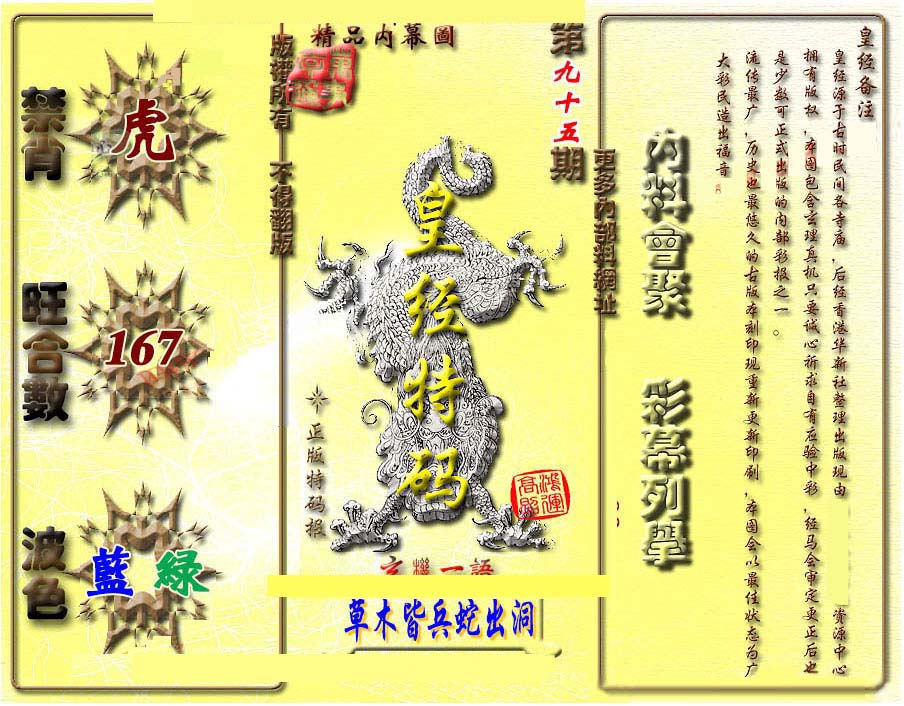 禁肖
虎
旺合數
167
波色
藍 綠
版權所有 不得翻版
精品内幕圖
第九十五期
皇经特码
正版特码报
鴻運
高照
玄機一語
草木皆兵蛇出洞
更多内部料網址
内料會聚 彩幕列舉
皇经备注
皇经源于古时民间各寺庙,后经香港华新社整理出版现由 资源中心
拥有版权,本图包含玄理真机只要诚心祈求自有应验中彩,经马会审定更正后也
是少数可正式出版的内部彩报之一。
流传最广,历史也最悠久的古版本刻印现重新更新印刷,本图会以最佳状态为广
大彩民造出福音